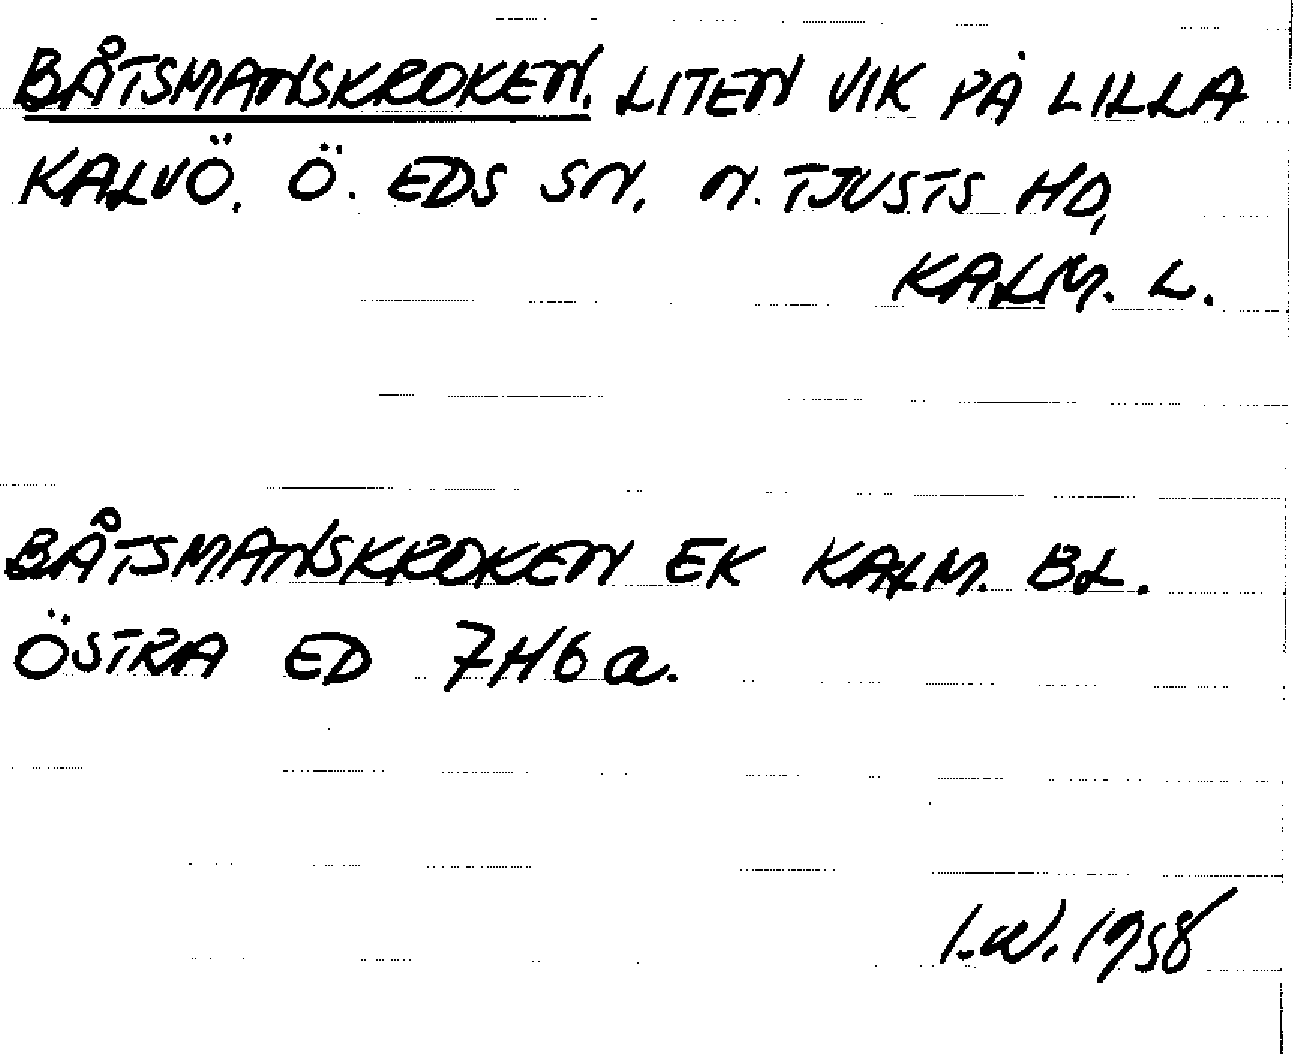 BÅTSMANSKROKEN. LITEN VIK PÅ LILLA
KALVÖ. Ö. EDS SN, N. TJUSTS HD,
KALM. L.
BÅTSMANSKROKEN EK KALM. BL.
ÖSTRA ED 7H6a.
I.W. 1958